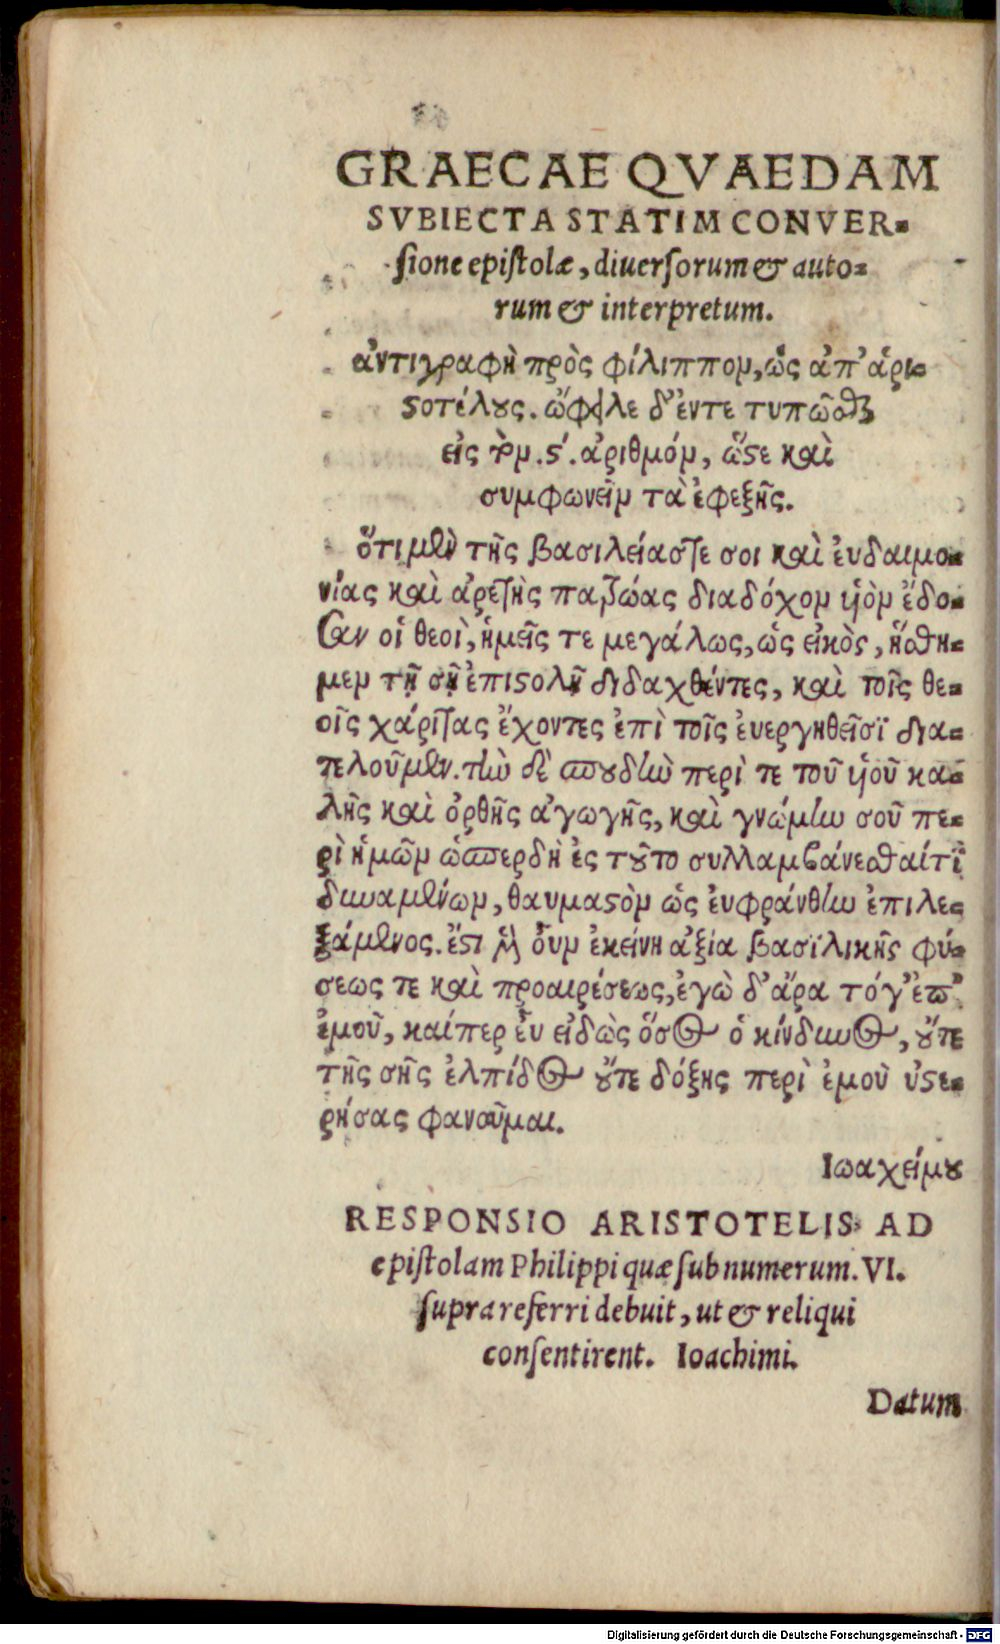 GRAECAE QVAEDAM
SVBIECTA STATIM CONVER-
sione epistolæ, diuersorum & auto-
rum & interpretum.
ἀντιγραφὴ πρὸς φίλιππομ, ὡς ἀπ' ἀρι-
ςοτέλȣς. ὤφειλε δ' ἐντετυπῶσθαι
εἰς τὸμ .ς'. ἀριθμόμ, ὥςε καὶ
συμφωνεῖμ τὰ ἐφεξῆς.
ὅτι μὲν τῆς βασιλείας τέ σοι καὶ ἐυδαιμο-
νίας καὶ ἀρετῆς πατρώας διάδόχομ ὑὸμ ἔδο-
σαν οἱ θεοὶ, ἡμεῖς τε μεγάλως, ὡς εἰκὸς, ἥσθη-
μεμ τῇ σῇ ἐπιςολῇ διδαχθέντες, καὶ τοῖς θε-
οῖς χάριτας ἔχοντες ἐπὶ τοῖς ἐυεργηθεῖσϊ δια-
τελοῦμεν. τὴν δὲ σπȣδὴν περὶ τε τοῦ ὑοῦ κα-
λῆς καὶ ὀρθῆς ἀγωγῆς, καὶ γνώμην σοῦ πε-
ρὶ ἡμῶμ ὥσπερ δὴ ἐς τȣ͂το συλλαμβάνεσθαί τι
δυναμένωμ, θαυμαςὸμ ὡς ἐυφράνθην ἐπιλε-
ξάμενος. ἔςι μὲν οὖμ ἐκείνη ἀξία βασϊλικῆς φύ-
σεως τε καὶ προαιρέσεως, ἐγὼ δ' ἄρα τό γ' ἐπ'
ἐμοῦ, καίπερ ἐυ εἰδὼς ὅσος ὁ κίνδυνος, ȣ̓́τε
τῆς σῆς ἐλπίδος ȣ̓́τε δόξης περὶ ἐμοῦ ὑςε-
ρήσας φανοῦμαι.
Ιωαχείμȣ
RESPONSIO ARISTOTELIS AD
epistolam Philippi quæ sub numerum. VI.
supra referri debuit, ut & reliqui
consentirent. Ioachimi.
Datum
Digitalisierung gefördert durch die Deutsche Forschungsgemeinschaft - DFG